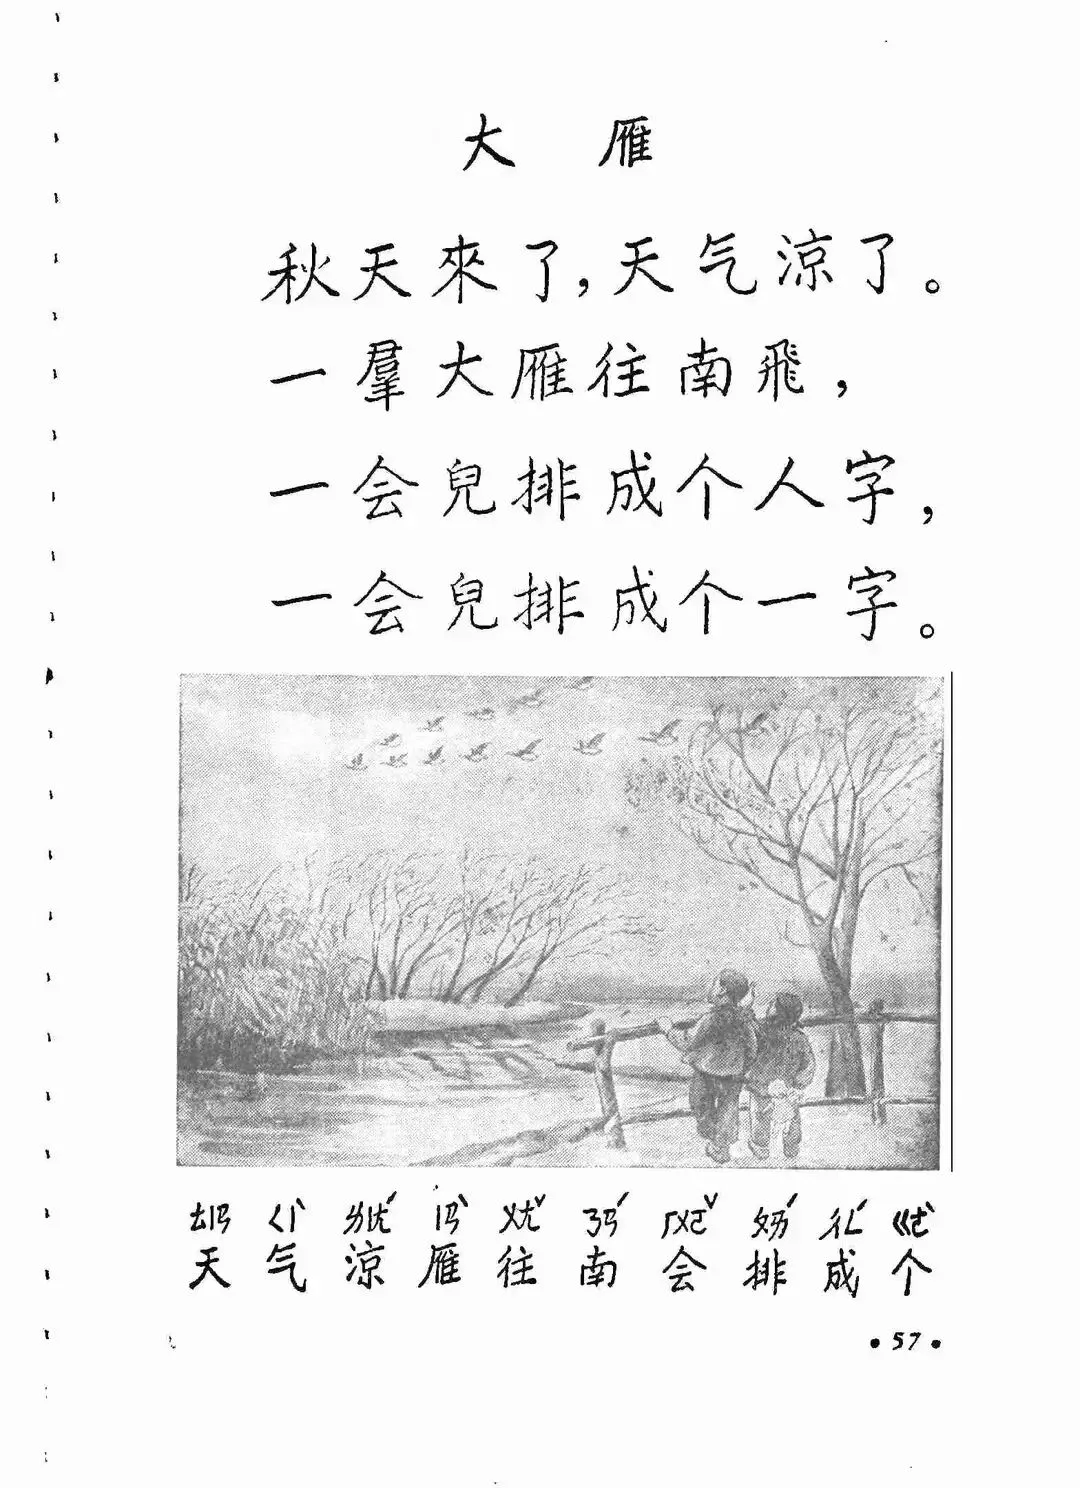 大 雁
秋天來了，天气涼了。
一羣大雁往南飛，
一会兒排成个人字，
一会兒排成个一字。
ㄊㄧㄢ ㄑㄧˋ ㄌㄧㄤˊ ㄧㄢˋ ㄨㄤˇ ㄋㄢˊ ㄏㄨㄟˇ ㄆㄞˊ ㄔㄥˊ ㄍㄜˋ
天 气 涼 雁 往 南 会 排 成 个
·57·